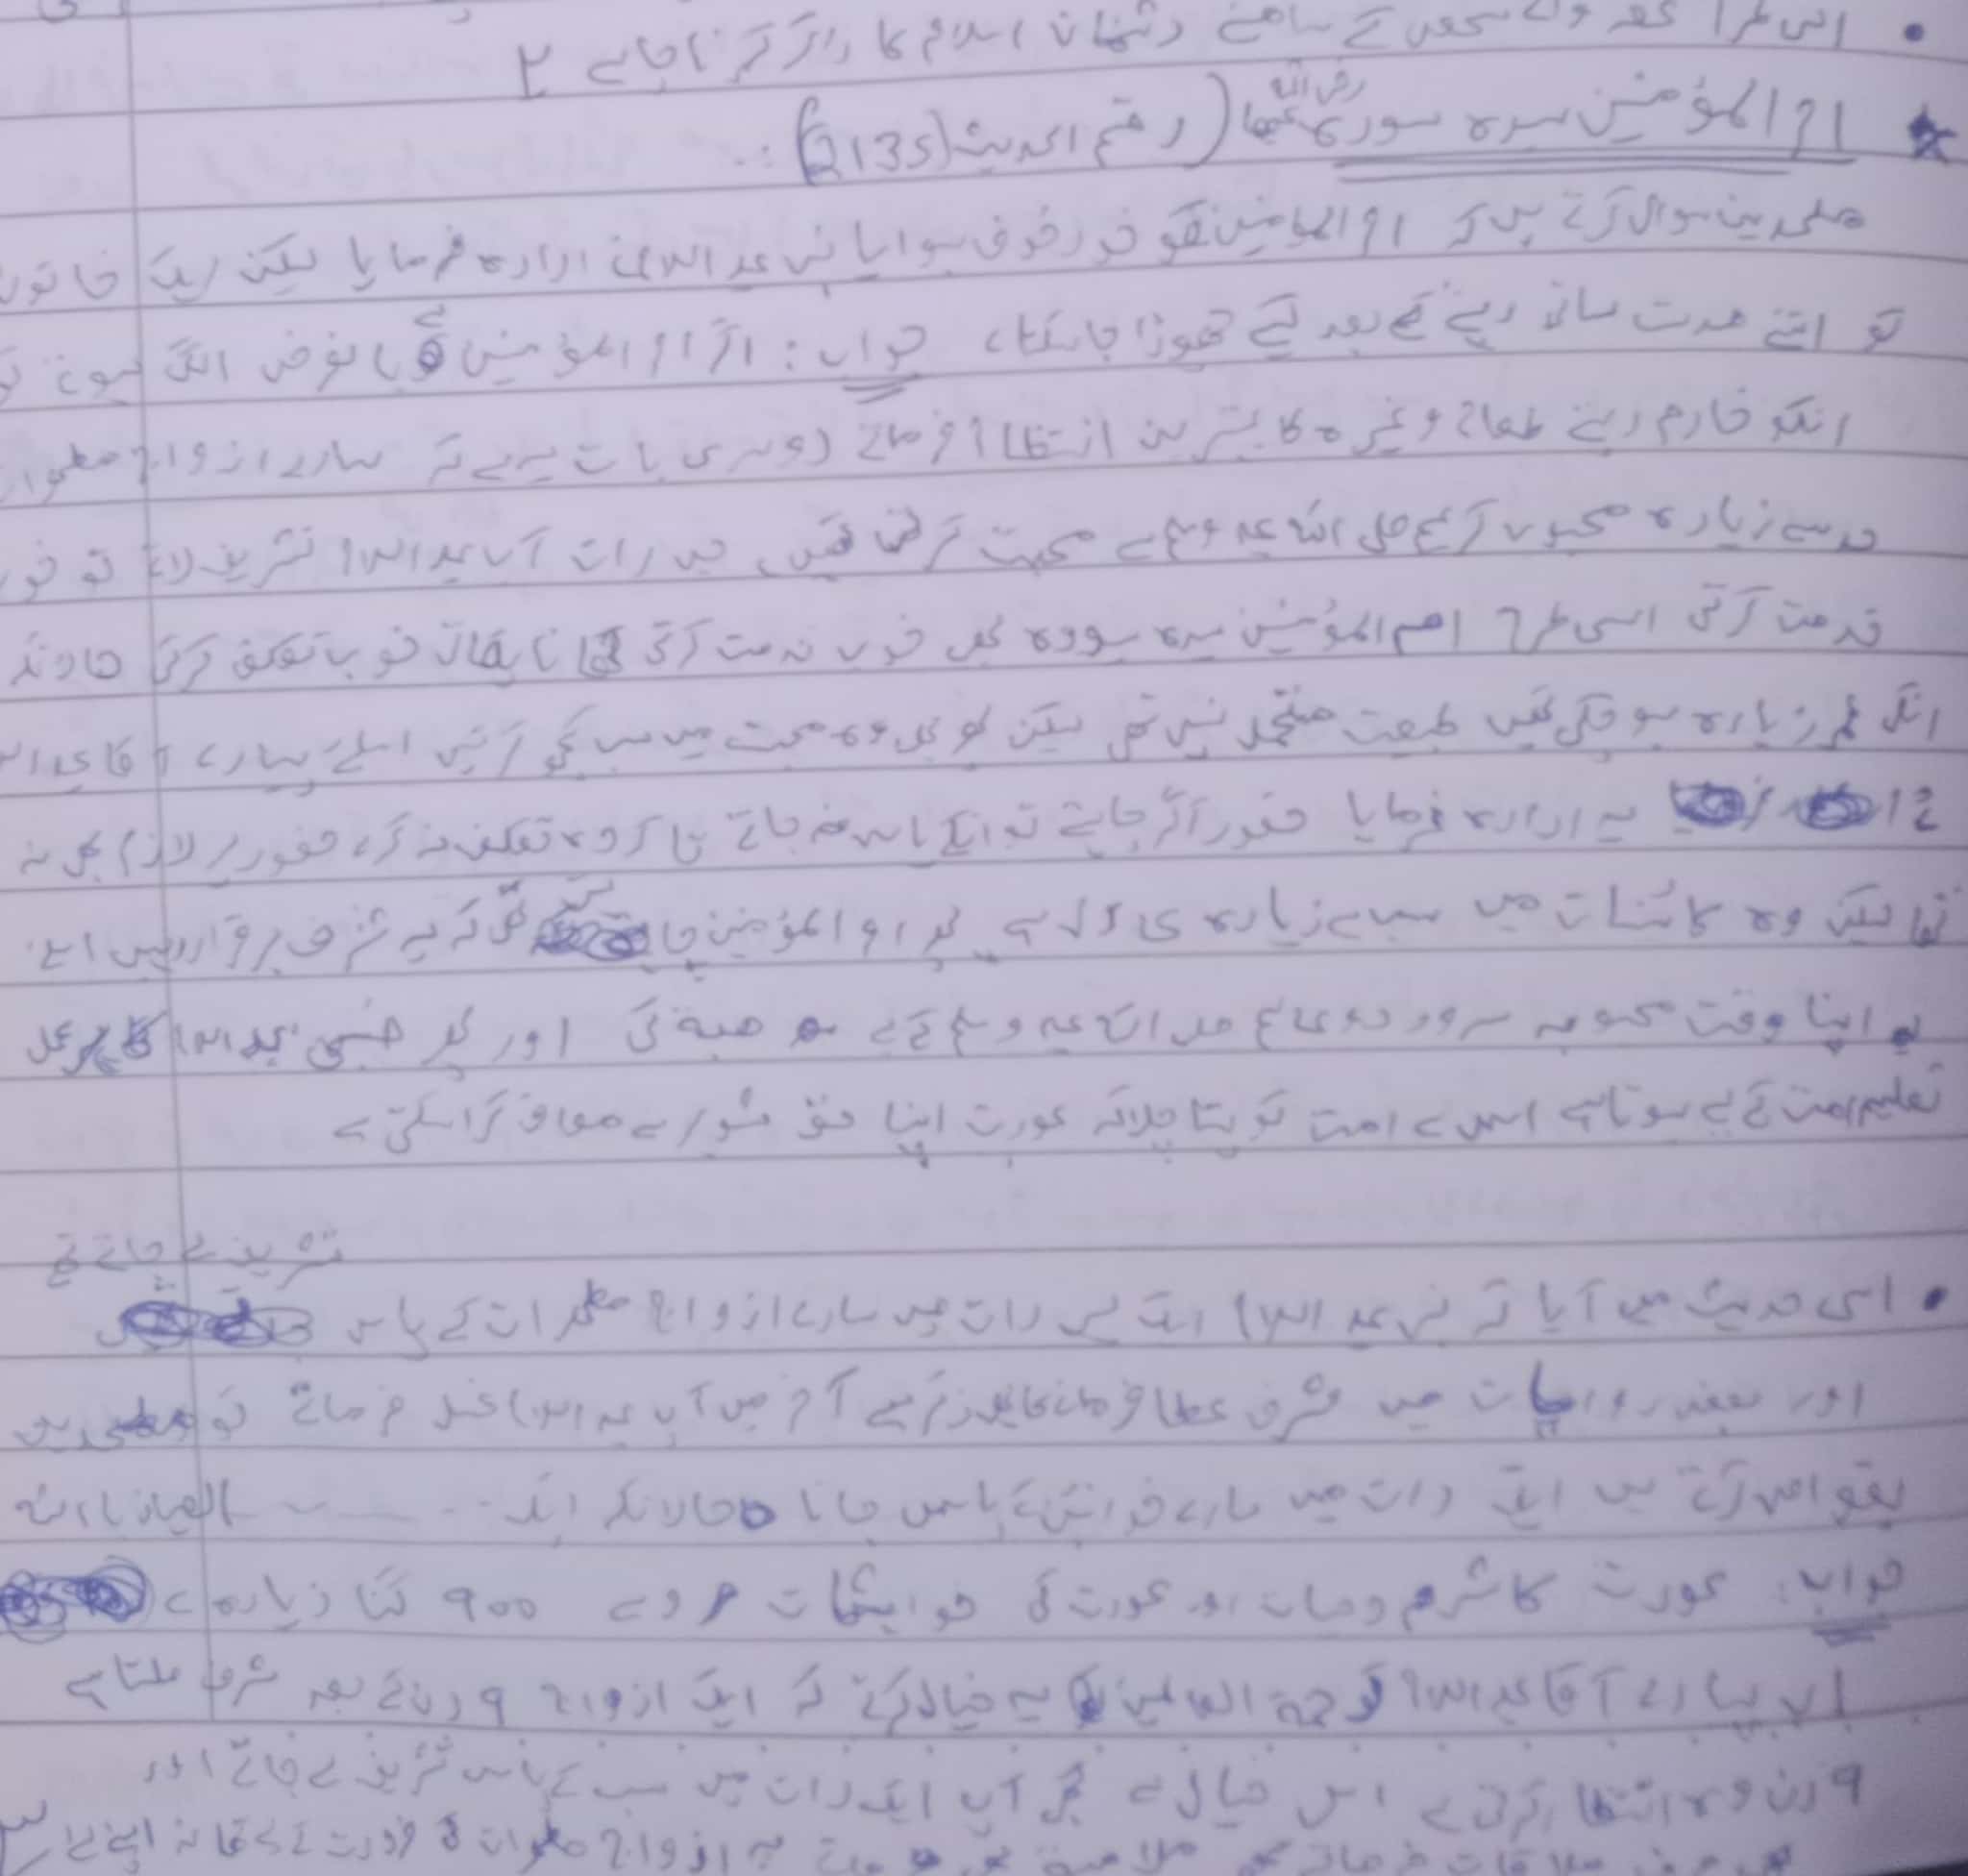 کے سامنے دشمنان اسلام کا رد کرنا چاہے ۲
ام المؤمنین سیدہ سودہ رضی اللہ عنھا (رقم الحدیث 2135):
ملحدین سوال کرتے ہیں کہ ام المؤمنین کو خود خوف ہوا یا نبی علیہ السلام نے ارادہ فرمایا لیکن ایک خاتون
کو اتنے مدت ساتھ رہنے کے بعد کیسے چھوڑا جاسکتا، جواب: اگر ام المؤمنین بالفرض الگ ہوتے تو
انکو خادم دیتے طعام وغیرہ کا بہترین انتظام فرماتے دوسری بات یہ ہے کہ سارے ازواج مطہرات
حد سے زیادہ محبوب کریم صلی اللہ علیہ وسلم سے محبت کرتی تھیں، جس رات آپ علیہ السلام تشریف لاتے تو خوب
خدمت کرتی اسی طرح ام المؤمنین سیدہ سودہ بھی خوب خدمت کرتی کھانا پکانا خوب تکلف کرتی حالانکہ
انکی عمر زیادہ ہو چکی تھیں طبیعت متحمل نہیں تھی لیکن پھر بھی وہ محبت میں سب کچھ کرتیں اسلئے پیارے آقا علیہ السلام
نے یہ ارادہ فرمایا حضور اگر چاہتے تو انکے پاس نہ جاتے تاکہ وہ تکلف نہ کرے حضور پر لازم بھی نہ
تھا لیکن وہ کائنات میں سب سے زیادہ پھر ام المؤمنین کہ یہ شرف برقرار رہیں اسلئے
اپنا وقت محبوبہ سرور دو عالم صلی اللہ علیہ وسلم کے لیے ھبۃ کی اور پھر علیہ السلام کا ہر عمل
تعلیم امت کے لیے ہوتا ہے اس سے امت کو پتا چلا کہ عورت اپنا حق شوہر سے معاف کرا سکتی ہے
تشریف لے جاتے تھے
اسی حدیث میں آیا کہ نبی علیہ السلام ایک ہی رات میں سارے ازواج مطہرات کے پاس
اور بعض روایات میں شرف عطا فرمانے کا بھی ذکر ہے آخر میں آپ علیہ السلام غسل فرماتے تو ملحدین
بقواس کرتے ہیں ایک رات میں سارے خواتین کے پاس جانا حالانکہ ایک ...... العیاذ باللہ
جواب: عورت کا شرم وحیات اور عورت کی خواہشات مرد سے ۹۰۰ گنا زیادہ ہے
اب پیارے آقا علیہ السلام رحمۃ العالمین یہ خیال کرتے کہ ایک ازواج ۹ دن کے بعد شرف ملتا ہے
۹ دن وہ انتظار کرتی ہے اس خیال سے پھر آپ ایک رات میں سب کے پاس تشریف لے جاتے اور
ملاقات فرماتے یہ ازواج مطہرات کی ضرورت